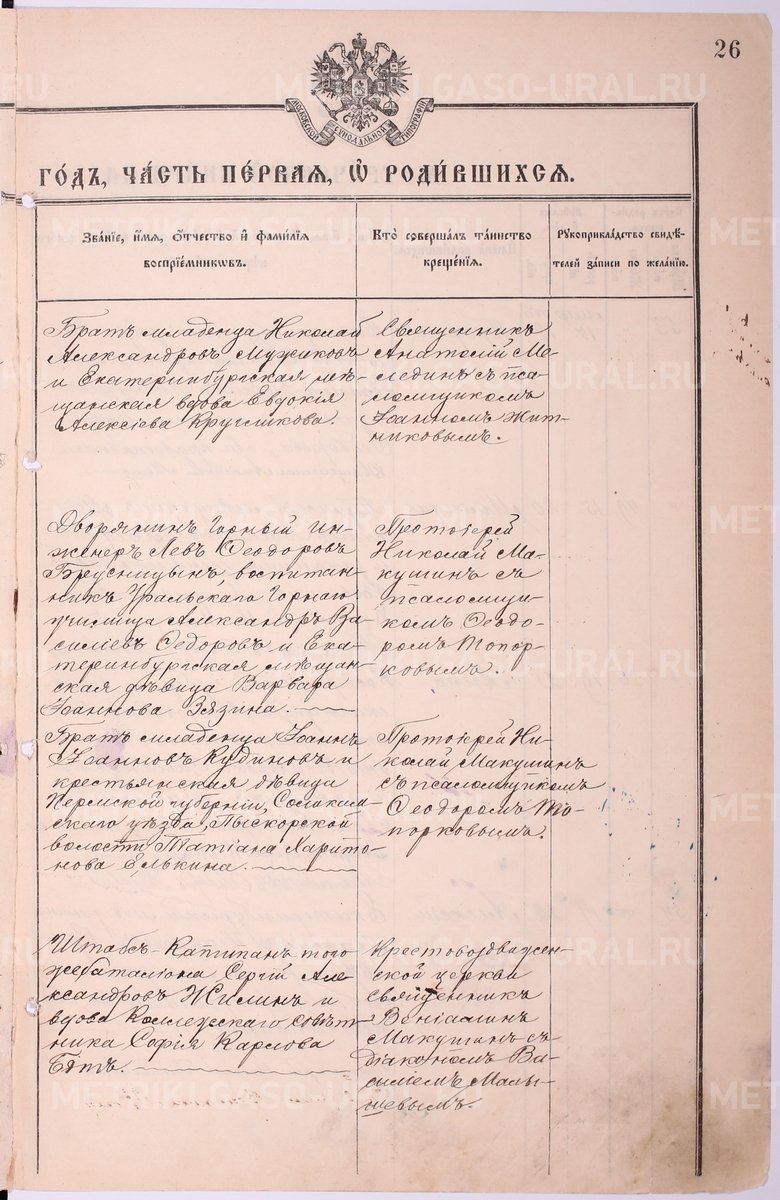 26
МОСКОВСКОЙ СѴНОДАЛЬНОЙ ТИПОГРАФІИ
ГОДЪ, ЧАСТЬ ПЕРВАЯ, Ѡ РОДИВШИХСЯ.
Званіе, имя, отчество и фамилія
воспріемниковъ.
Кто совершалъ таинство
крещенія.
Рукоприкладство свидѣ-
телей записи по желанію.
Братъ младенца Николай
Александровъ Мужиковъ
и Екатеринбургская мѣ-
щанская вдова Евдокія
Алексіева Кругликова.
Священникъ
Анатолій Ме-
лединъ съ пса-
ломщикомъ
Іоанномъ Жит-
никовымъ.
Дворянинъ Горный ин-
женеръ Левъ Ѳеодоровъ
Брусницынъ, воспитан-
никъ Уральскаго Горнаго
училища Александръ Ва-
силіевъ Ѳедоровъ и Ека-
теринбургская мѣщан-
ская дѣвица Варвара
Іоаннова Зязина.
Протоіерей
Николай Ма-
кушинъ съ
псаломщи-
комъ Ѳеодо-
ромъ Топор-
ковымъ.
Братъ младенца Іоаннъ
Іоанновъ Кудиновъ и
крестьянская дѣвица
Пермской губерніи, Соликам-
скаго уѣзда, Пыскорской
волости Татіана Харито-
нова Елькина.
Протоіерей Ни-
колай Макушинъ
съ псаломщикомъ
Ѳеодоромъ То-
порковымъ.
Штабсъ-Капитанъ того
же баталіона Сергій Але-
ксандровъ Жилинъ и
вдова Коллежскаго Совѣт-
ника Софія Карлова
Крестовоздвижен-
ской церкви
священникъ
Веніаминъ
Макушинъ съ
діакономъ Ва-
силіемъ Малы-
шевымъ.
METRIKI.GASO-URAL.RU